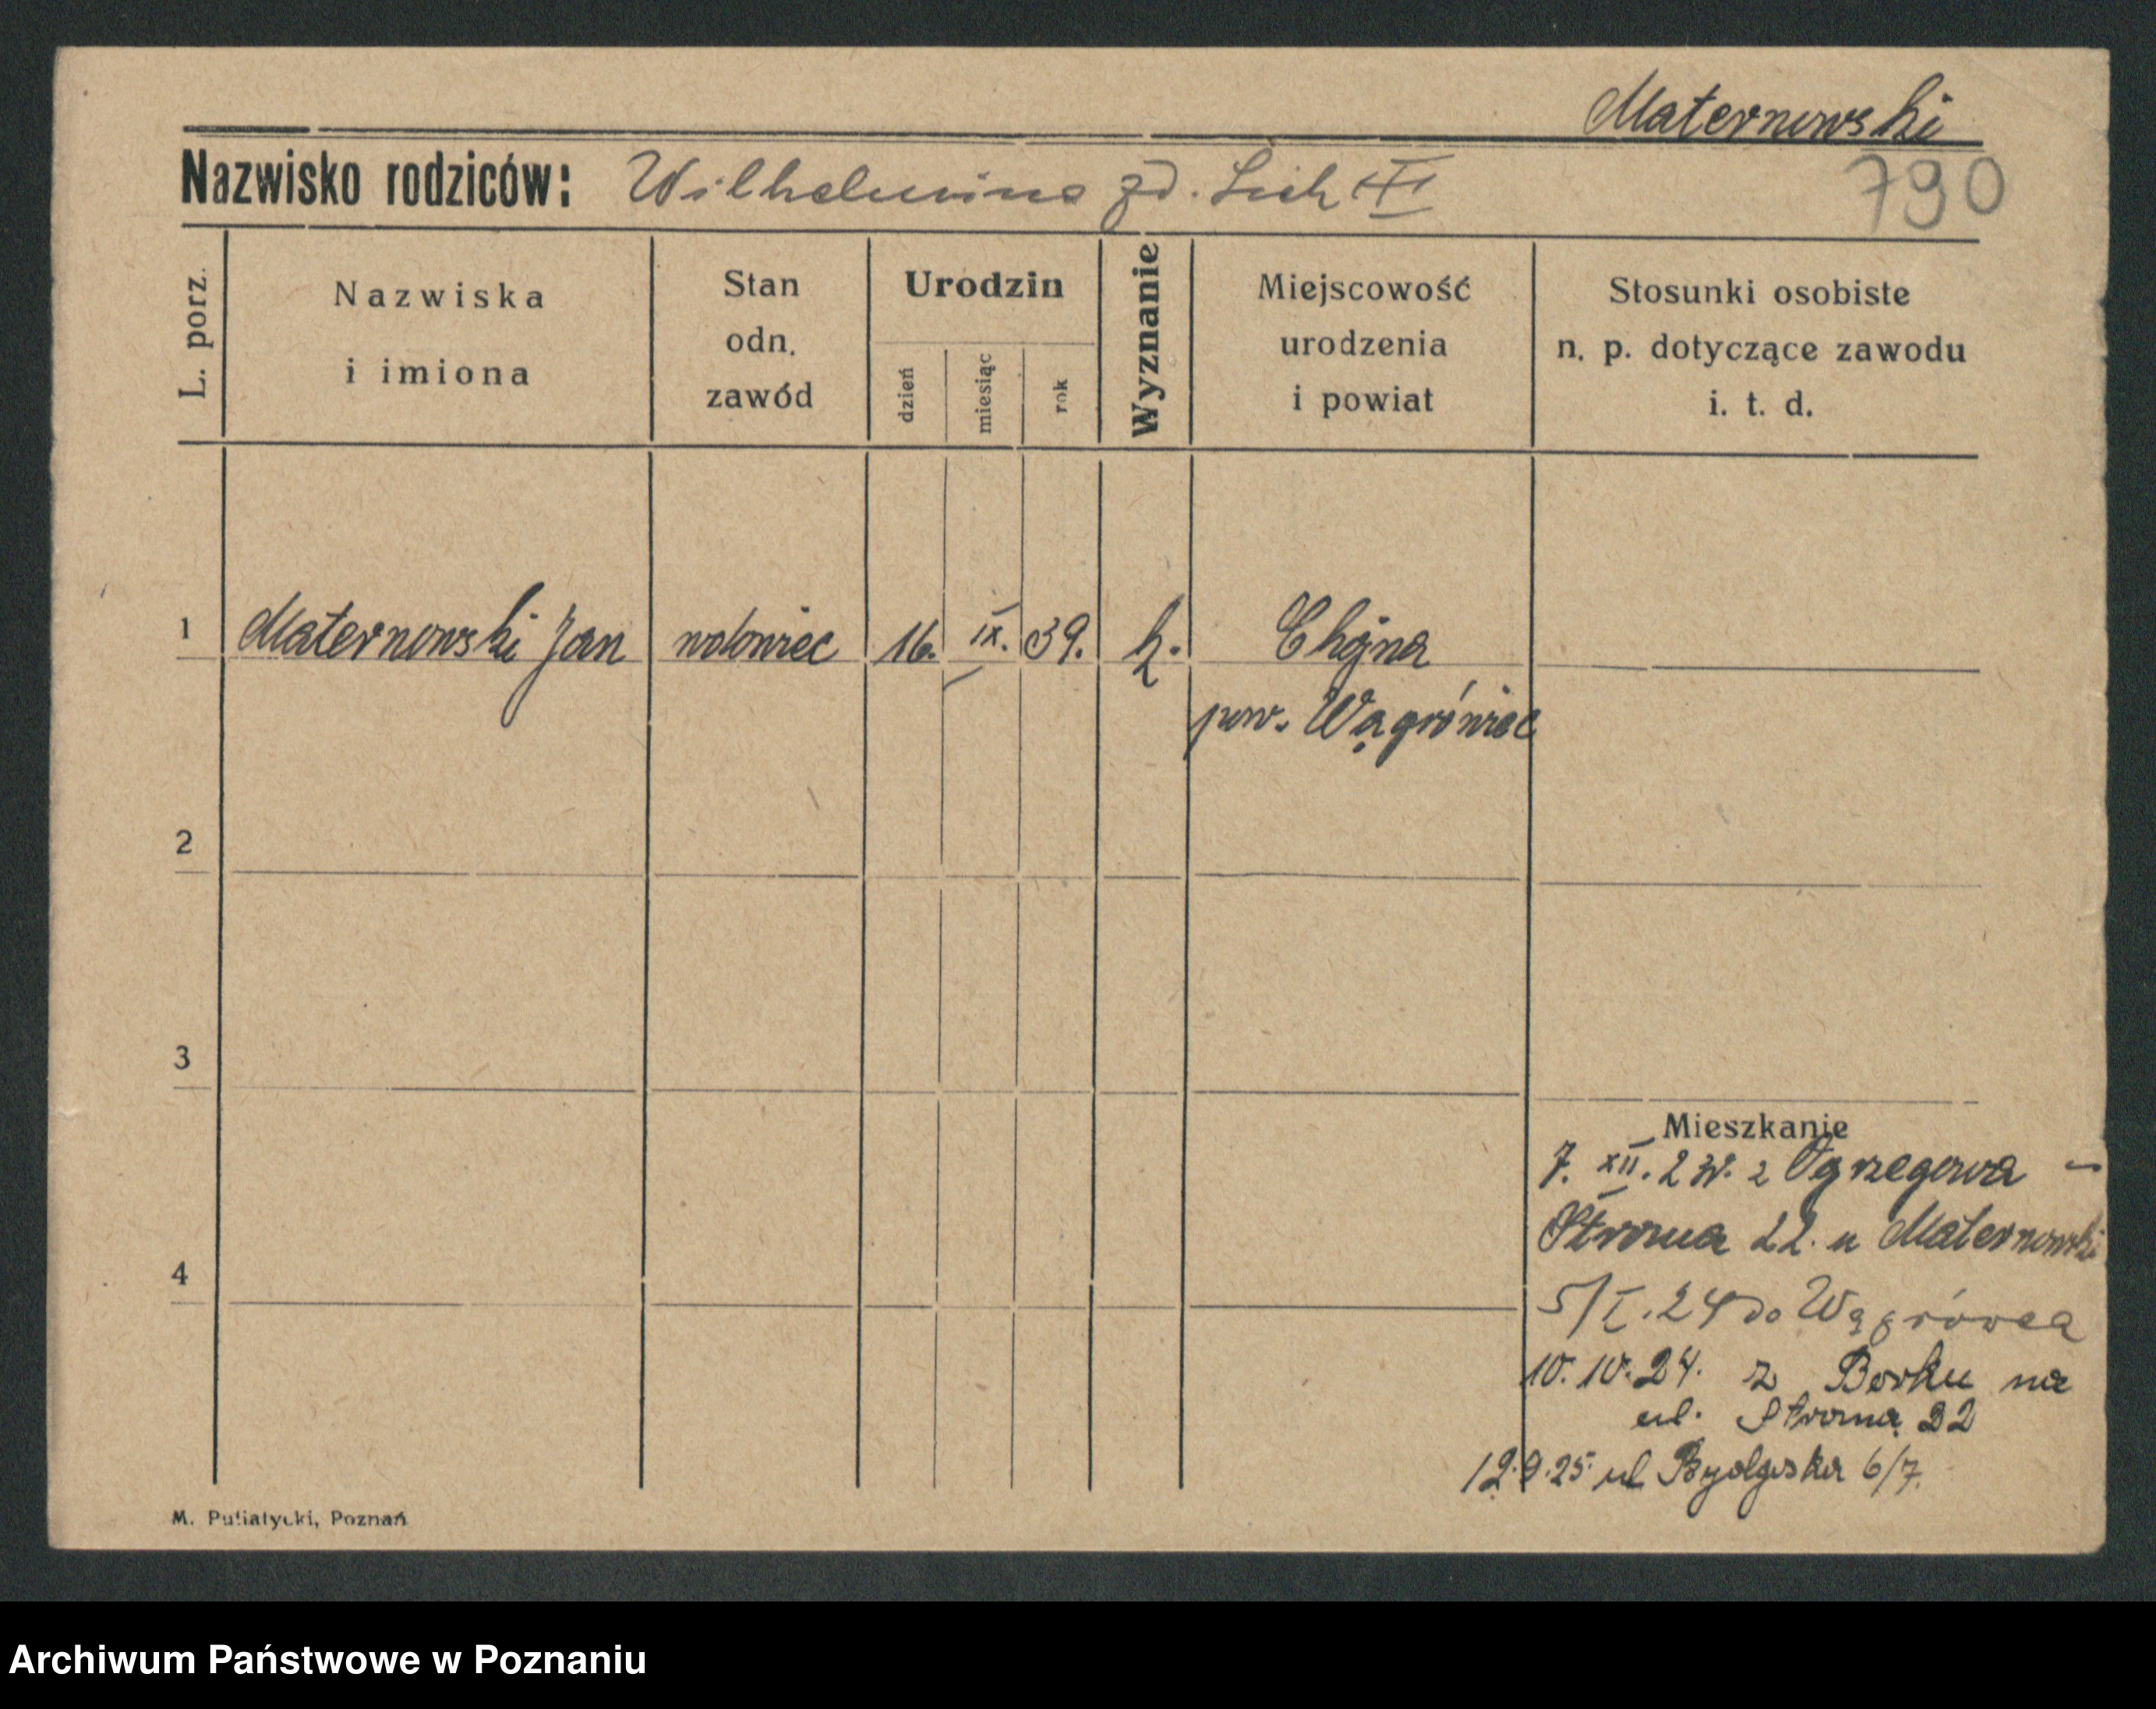 Maternowski
Nazwisko rodziców: Wilhelmina zd.
790
L. porz.
Nazwiska
i imiona
Stan
odn.
zawód
Urodzin
dzień
miesiąc
rok
Wyznanie
Miejscowość
urodzenia
i powiat
Stosunki osobiste
n. p. dotyczące zawodu
i. t. d.
1 Maternowski Jan wdowiec 16. IX. 39. k. Chojna
pow. Wągrówiec
2
3
Mieszkanie
7. XII. z
Stroma 22. u Maternowski
4
5/I.24 do Wągrówca
10.10.24. z Borku na
ul. Stroma 22
12.9.25 ul Bydgoska 6/7.
M. Putiatycki, Poznań
Archiwum Państwowe w Poznaniu